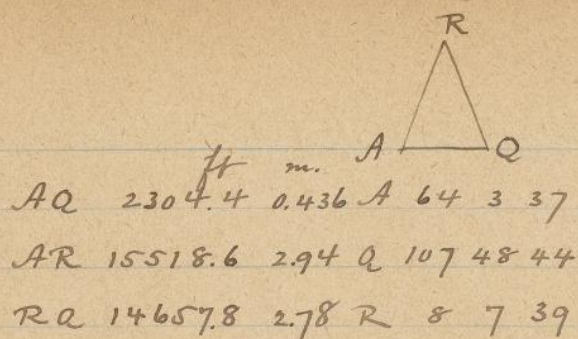 R
A Q
ft m.
AQ 2304.4 0.436 A 64 3 37
AR 15518.6 2.94 Q 107 48 44
RQ 14657.8 2.78 R 8 7 39